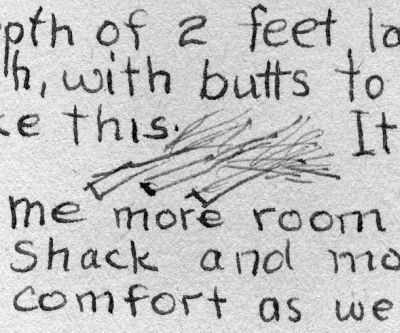 pth of 2 feet lo
h, with butts to
ke this. It
me more room
Shack and mo
comfort as we